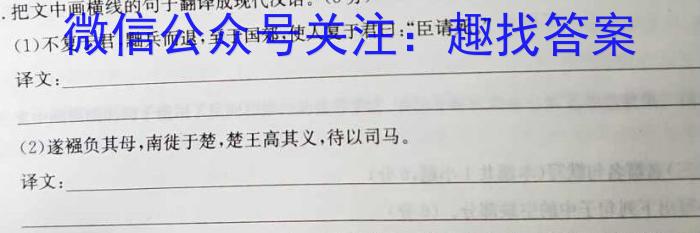 .把文中画横线的句子翻译成现代汉语。
微信公众号关注：趣找答案
(1)不复于君，黜兵而退，至于国郊，使人复于君曰：“臣请死
译文：
(2)遂襁负其母，南徙于楚，楚王高其义，待以司马。
译文：